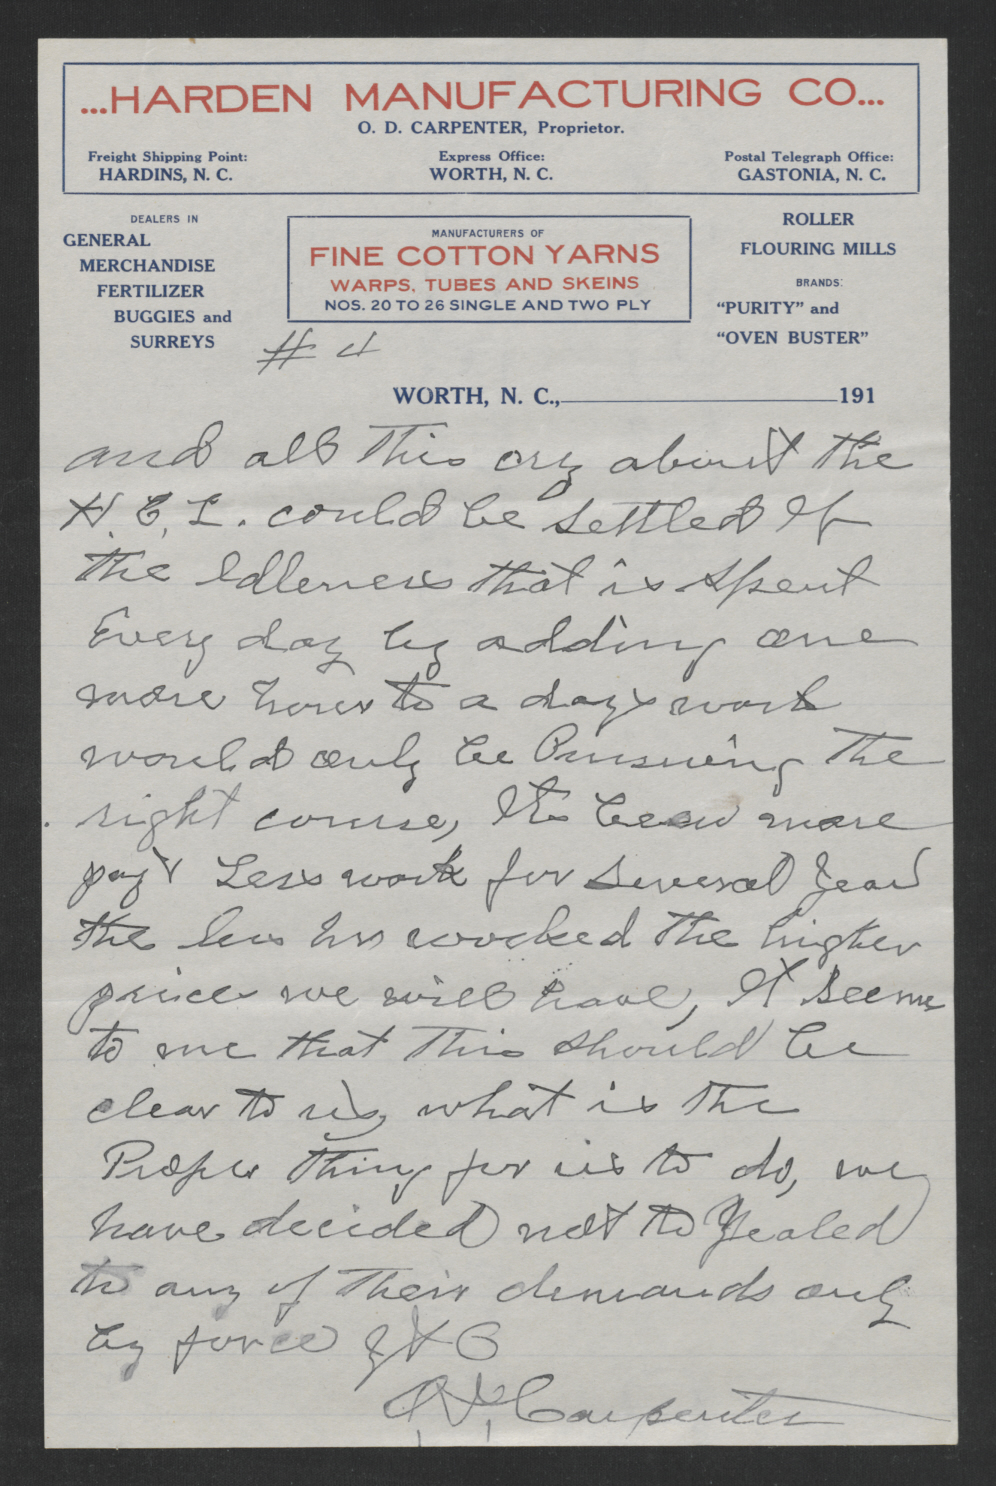 ...HARDEN MANUFACTURING CO...
O. D. CARPENTER, Proprietor.
Freight Shipping Point:
HARDINS, N. C.
Express Office:
WORTH, N. C.
Postal Telegraph Office:
GASTONIA, N. C.
DEALERS IN
GENERAL
MERCHANDISE
FERTILIZER
BUGGIES and
SURREYS
MANUFACTURERS OF
FINE COTTON YARNS
WARPS, TUBES AND SKEINS
NOS. 20 TO 26 SINGLE AND TWO PLY
ROLLER
FLOURING MILLS
BRANDS:
"PURITY" and
"OVEN BUSTER"
# 4
WORTH, N. C., 191
and all this cry about the
H. C. L. could be settled If
the Idleness that is spent
Every day by adding one
more hour to a days work
would only be Pursuing the
right course, Its been more
pay & Less work for several years
the less hrs worked the higher
prices we will have, It seems
to me that this should be
clear to us, what is the
Proper thing for us to do, we
have decided not to Yealed
to any of their demands only
by force
O. D. Carpenter